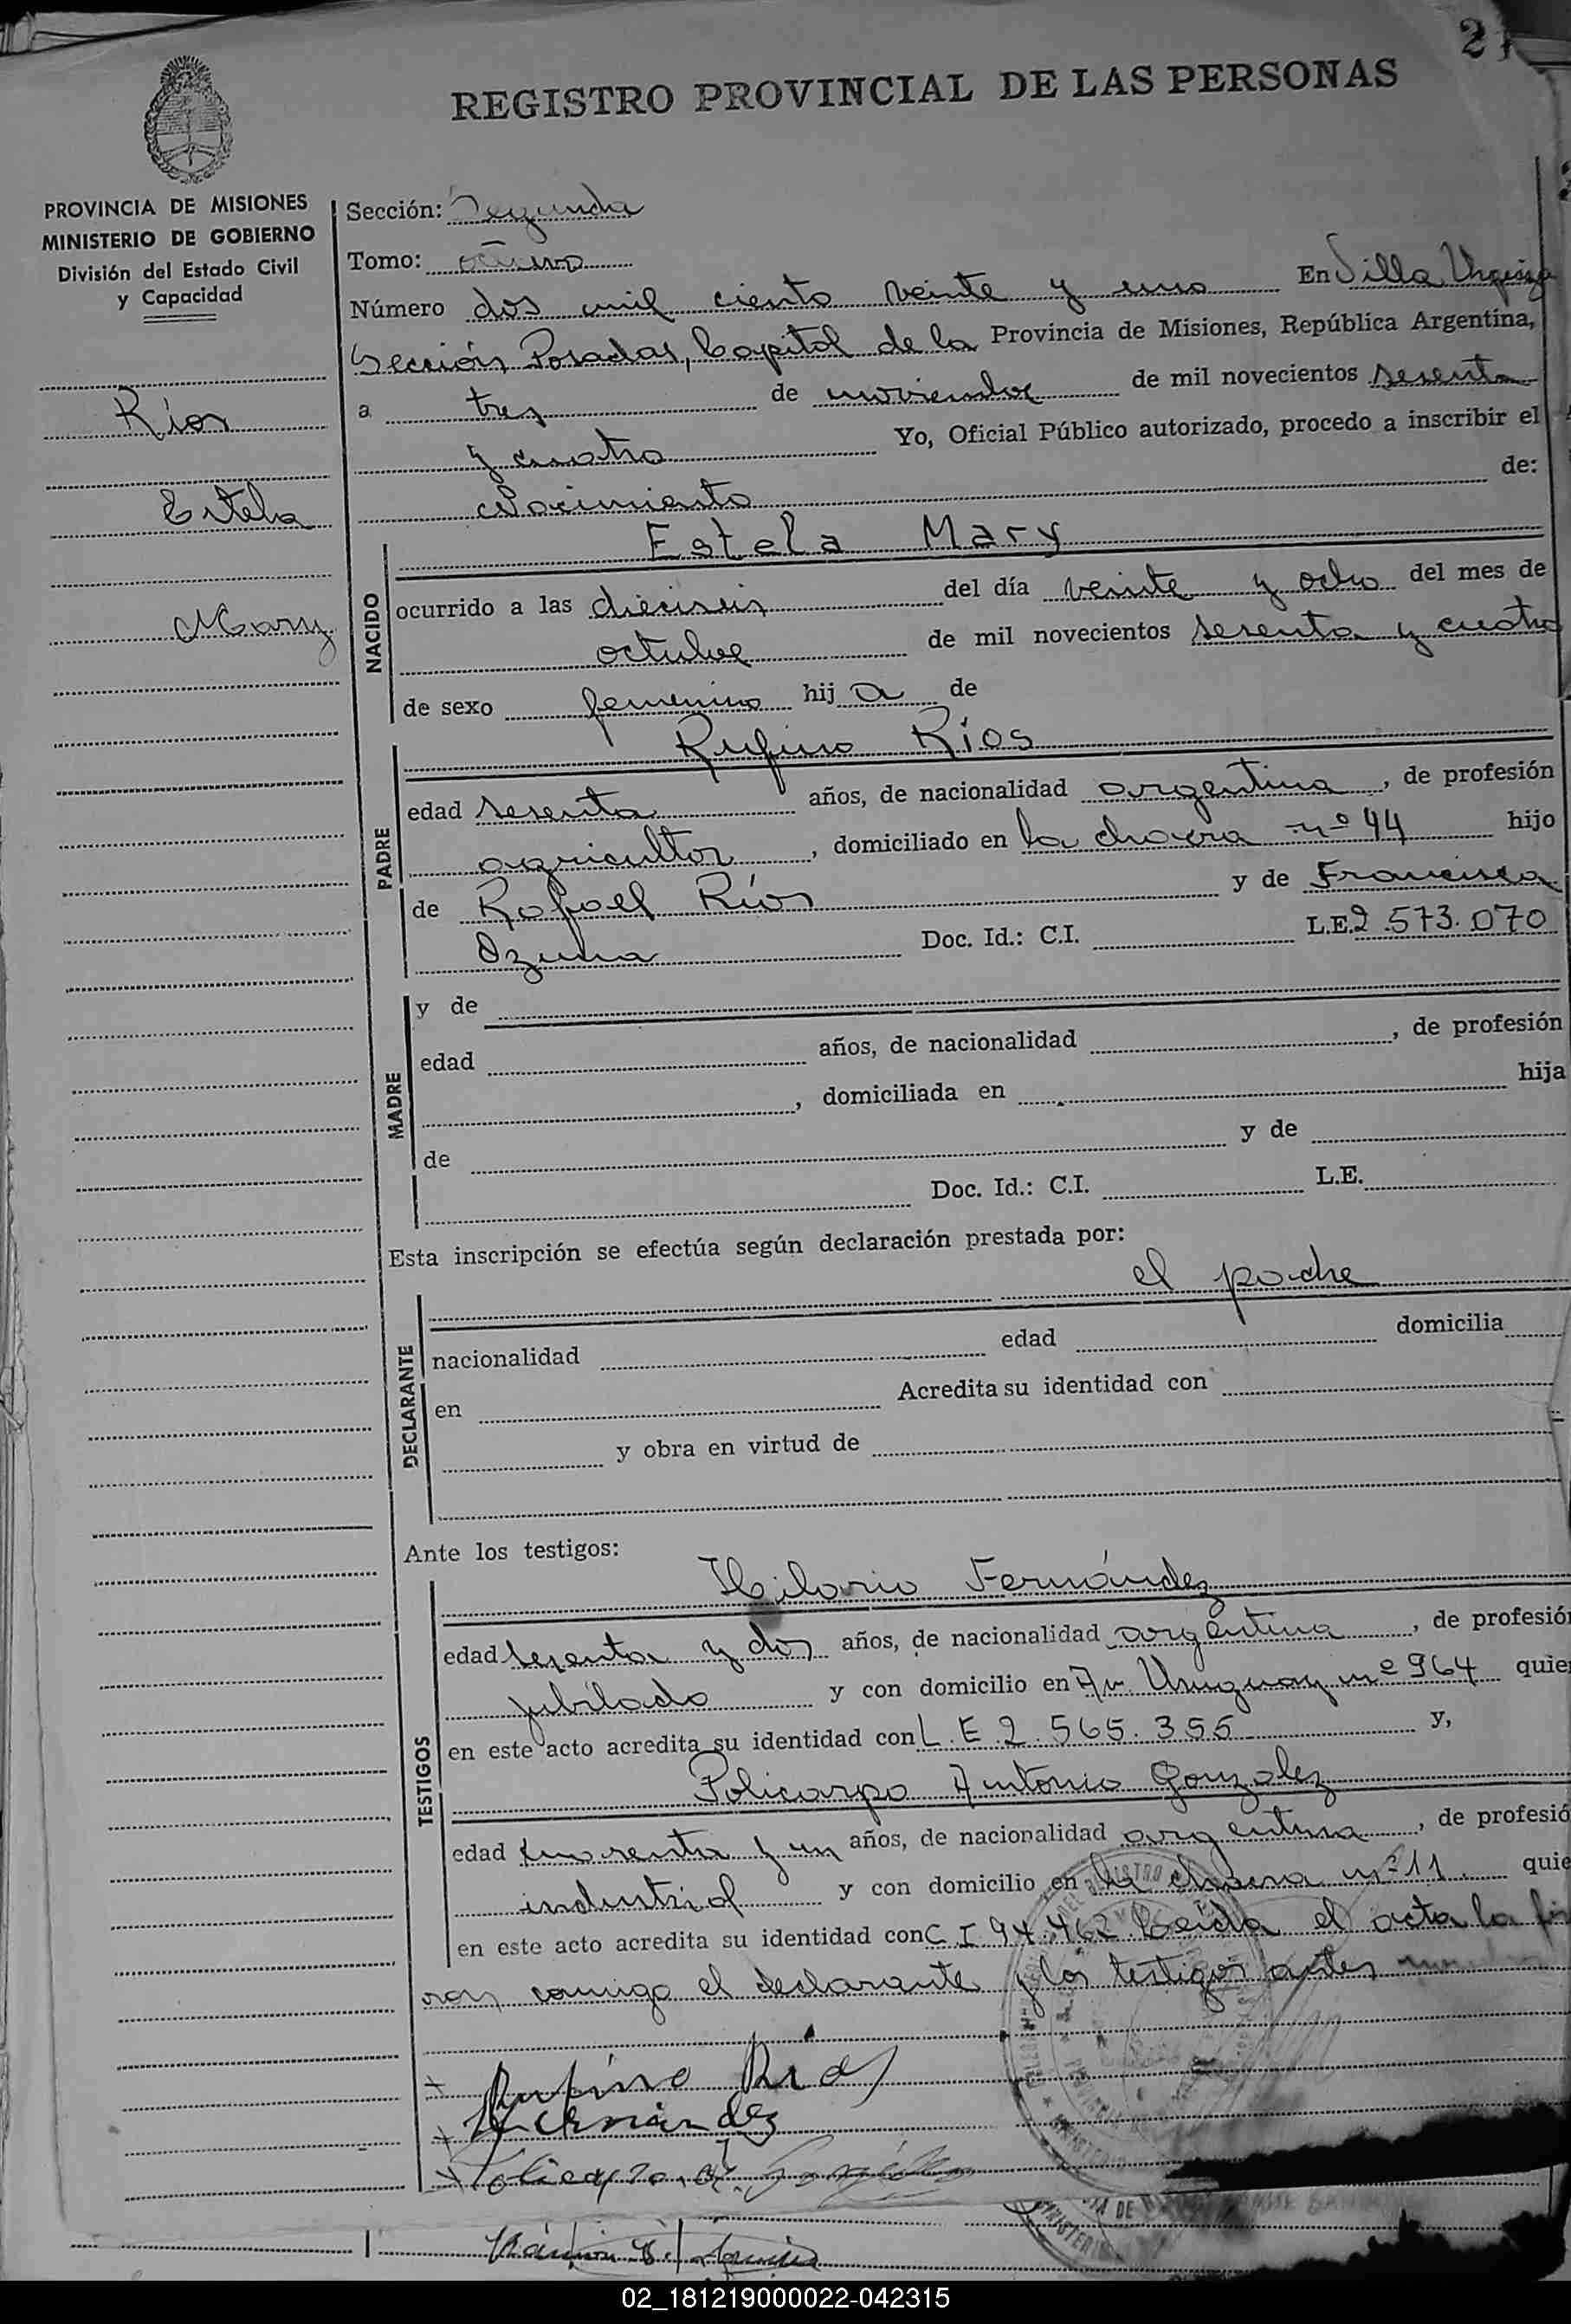 2
REGISTRO PROVINCIAL DE LAS PERSONAS
PROVINCIA DE MISIONES
MINISTERIO DE GOBIERNO
División del Estado Civil
y Capacidad
Ríos
Estela
Mary
Sección: Segunda
Tomo: octavo
Número dos mil ciento veinte y uno En Villa Urquiza
Sección Posadas, Capital de la Provincia de Misiones, República Argentina,
a tres de noviembre de mil novecientos sesenta
y cuatro Yo, Oficial Público autorizado, procedo a inscribir el
Nacimiento de:
NACIDO
Estela Mary
ocurrido a las dieciseis del día veinte y ocho del mes de
octubre de mil novecientos sesenta y cuatro
de sexo femenino hij a de
PADRE
Rufino Ríos
edad sesenta años, de nacionalidad argentina, de profesión
agricultor, domiciliado en la chacra nº 44 hijo
de Rafael Ríos y de Francisca
Ozuna Doc. Id.: C.I. L.E. 2.573.070
MADRE
y de
edad años, de nacionalidad , de profesión
, domiciliada en hija
de y de
Doc. Id.: C.I. L.E.
Esta inscripción se efectúa según declaración prestada por:
DECLARANTE
el padre
nacionalidad edad domicilia
en Acredita su identidad con
y obra en virtud de
Ante los testigos:
TESTIGOS
Hilario Fernández
edad sesenta y dos años, de nacionalidad argentina, de profesión
jubilado y con domicilio en Av. Uruguay nº 964 quie
en este acto acredita su identidad con L.E. 2.565.355 y,
Policarpo Antonio Gonzalez
edad cuarenta y un años, de nacionalidad argentina, de profesió
industrial y con domicilio en la chacra nº 11. quie
en este acto acredita su identidad con C I 94.462. Leída el acta la fir
man conmigo el declarante y los testigos antes
Rufino Rios
H Fernández
Policarpo A. González
02_181219000022-042315